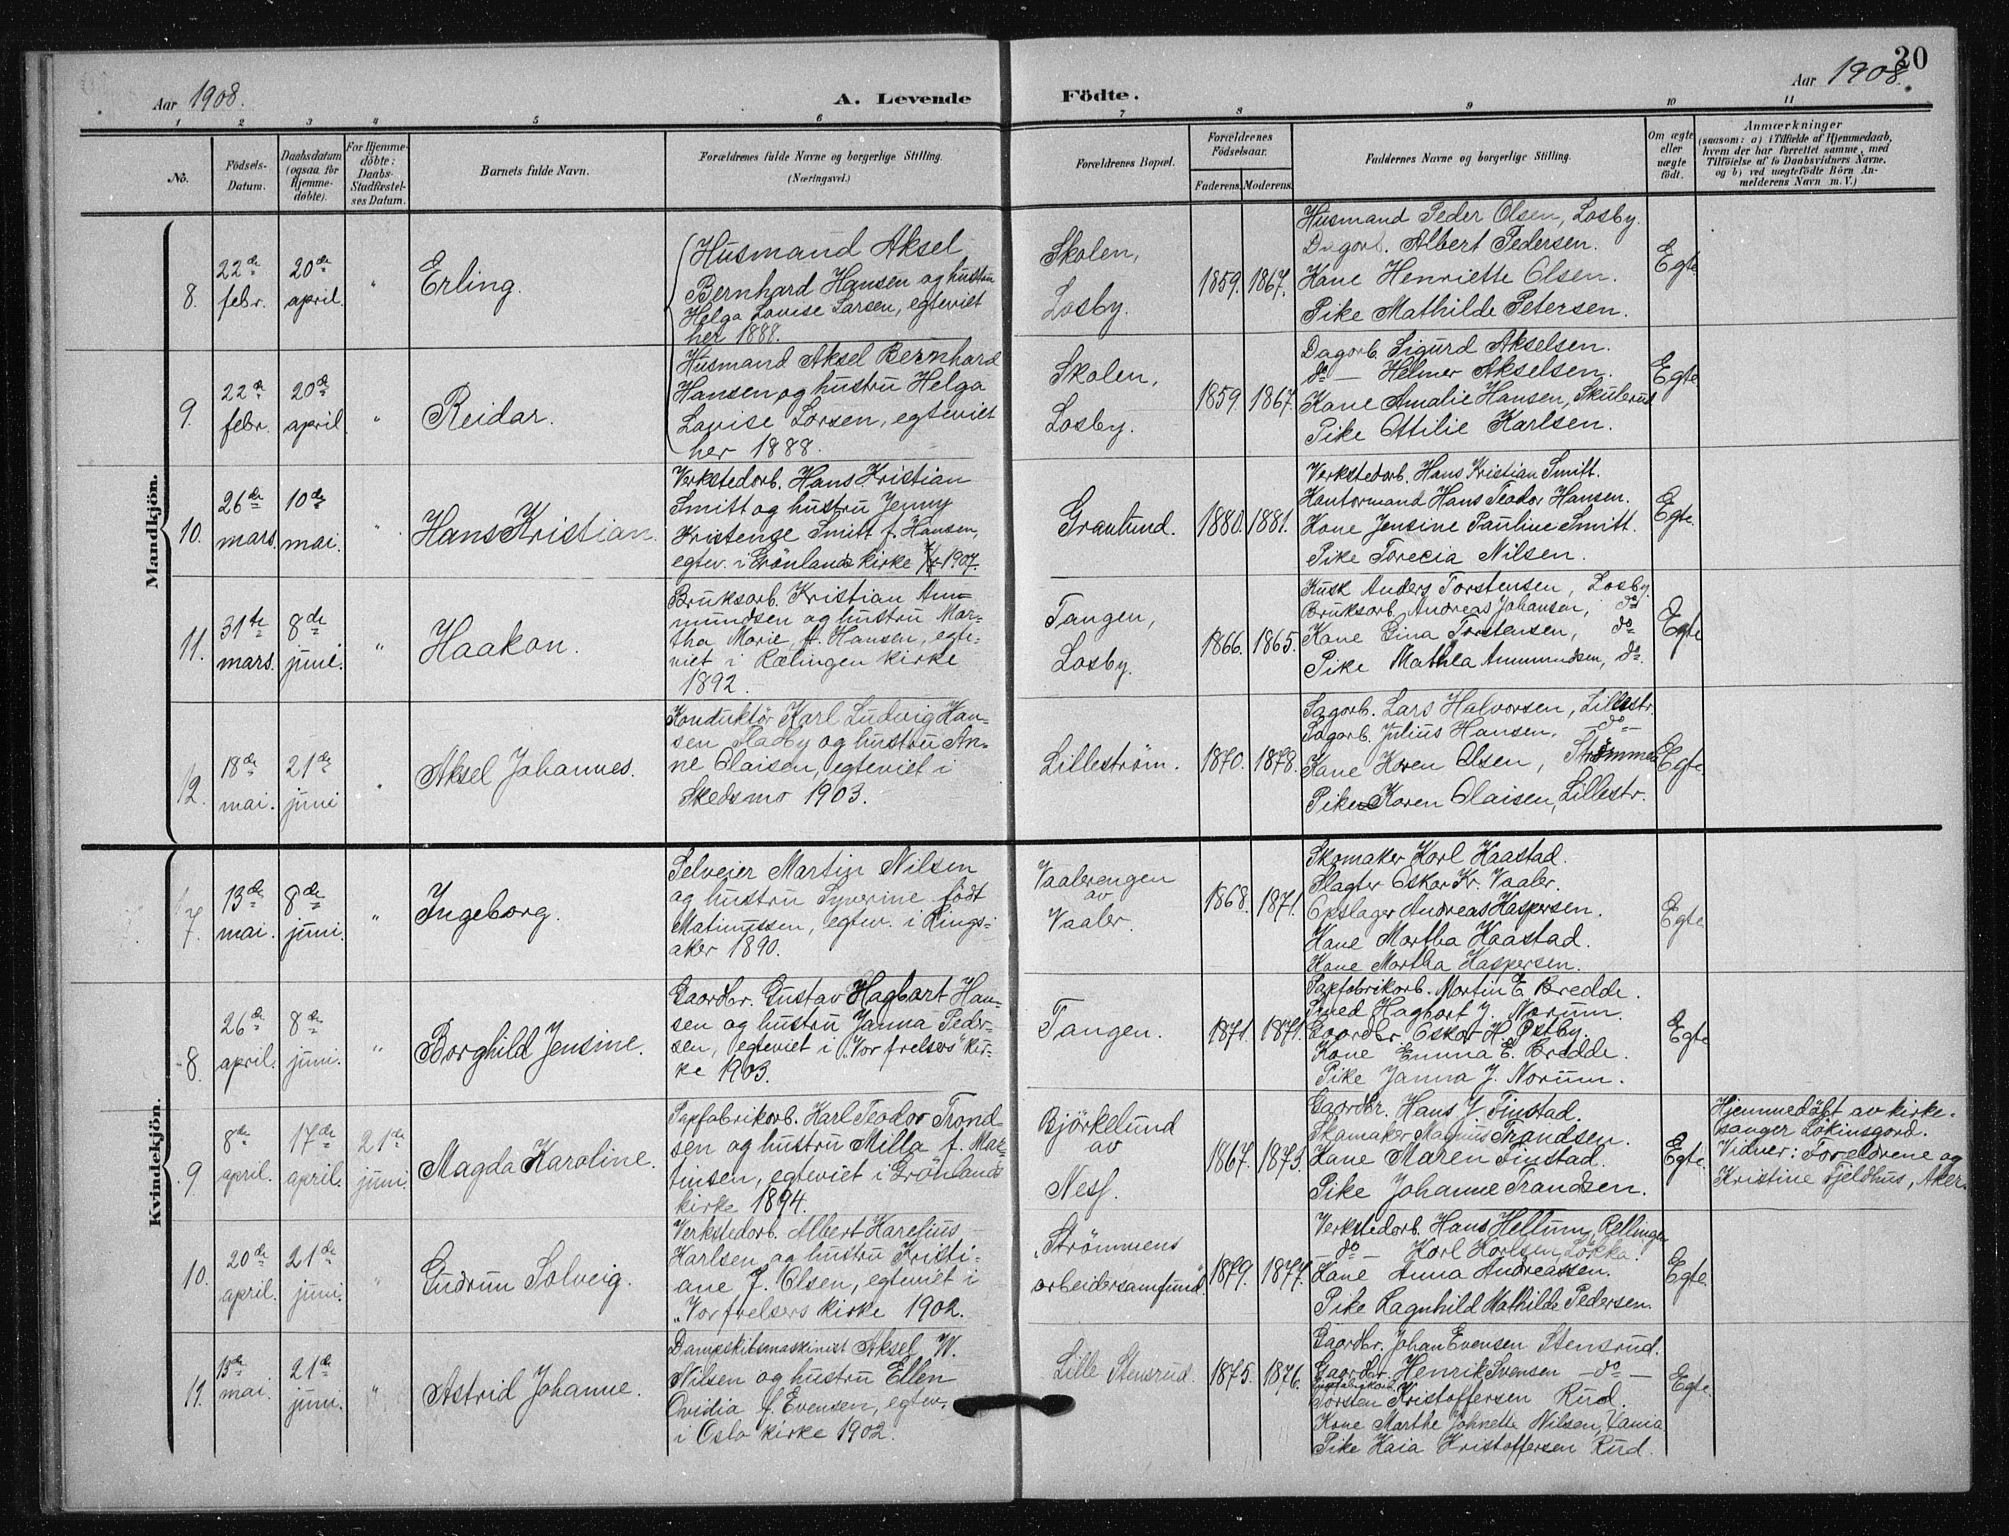 20
Aar 1908.
A. Levende
Födte.
Aar 1908.
1
2
3
4
5
6
7
8
9
10
11
No.
Födsels-
Datum.
Daabsdatum
(ogsaa for
Hjemme-
döbte).
For Hjemme-
döbte:
Daabs-
Stadfæstel-
ses Datum.
Barnets fulde Navn.
Forældrenes fulde Navne og borgerlige Stilling.
(Næringsvei.)
Forældrenes Bopæl.
Forældrenes
Födselsaar.
Faderens.
Moderens.
Faddernes Navne og borgerlige Stilling.
Om ægte
eller
uægte
födt.
Anmærkninger
(saasom: a) i Tilfælde af Hjemmedaab,
hvem der har forrettet samme, med
Tilföielse af to Daabsvidners Navne,
og b) ved uægtefödte Börn An-
melderens Navn m. V.)
Mandkjön.
8.
22de
febr.
20de
april.
"
Erling.
Husmand Aksel
Bernhard Hansen og hustru
Helga Lovise Larsen, egteviet
her 1888.
Skolen,
Losby.
1859.
1867.
Husmand Peder Olsen, Losby.
Dagorb. Albert Pedersen.
Kone Henriette Olsen.
Pike Mathilde Petersen.
Egte
9.
22de
febr.
20de
april.
"
Reidar.
Husmand Aksel Bernhard
Hansen og hustru Helga
Lovise Larsen, egteviet
her 1888.
Skolen,
Losby.
1859.
1867.
Dagorb. Sigurd Akselsen.
do — Helmer Akselsen.
Kone Amalie Hansen, Skulerud
Pike Ottilie Karlsen.
Egte
10.
26de
mars.
10de
mai.
"
Hans Kristian.
Verkstedorb. Hans Kristian
Smitt og hustru Jenny
Kristense Smitt f. Hansen,
egtev. i Grönlands kirke 1907.
Granlund.
1880.
1881.
Verkstedorb. Hans Kristian Smitt.
Kontormand Hans Teodor Hansen.
Kone Jensine Pauline Smitt.
Pike Torecia Nilsen.
Egte.
11.
31te
mars.
8de
juni.
"
Haakon.
Bruksorb. Kristian Am-
mundsen og hustru Mar-
tha Marie, f. Hansen, egte-
viet i Rælingen kirke
1892.
Tangen,
Losby.
1866.
1865.
Kusk Anders Torstensen, Losby.
Bruksorb. Andreas Johansen, do
Kone Gina Torstensen, do
Pike Mathea Ammundsen, do.
Egte
12.
18de
mai.
21de
juni
"
Aksel Johannes.
Konduktör Karl Ludvig Han-
sen Sladby og hustru An-
ne Olaisen, egteviet i
Skedsmo 1903.
Lilleström.
1870.
1878.
Sagorb. Lars Halvorsen, Lillestr.
Sagorb. Julius Hansen, —do—
Kone Karen Olsen, Strömmen
Pike Karen Olaisen, Lillestr.
Egte
Kvindekjön.
7.
13de
mai.
8de
juni.
"
Ingeborg.
Selveier Martin Nilsen
og hustru Syverine födt
Matinussen, egtev. i Rings-
aker 1890.
Vaalerengen
av
Vaaler.
1868.
1871.
Skomaker Karl Haastad.
Slagter Oskar Kr. Vaaler.
Opslager Andreas Kaspersen.
Kone Martha Haastad.
Kone Martha Kaspersen.
Egte
8.
26de
april.
8de
juni.
"
Borghild Jensine.
Gaardbr. Gustav Hagbart Han-
sen og hustru Janna Peder-
sen, egteviet i "Vor frelsers" kir-
ke 1903.
Tangen.
1871.
1871.
Papfabrikorb. Martin E. Bredde.
Smed Hagbart J. Norum.
Gaardbr. Oskar H. Östby.
Kone Emma E. Bredde.
Pike Janna J. Norum.
Egte
9.
8de
april.
17de
april.
21de
juni.
Magda Karoline.
Papfabrikorb. Karl Teodor Trond-
sen og hustru Milla f. Mar-
tinsen, egteviet i Grönlands
kirke 1894.
Björkelund
av
Nesf.
1867.
1873.
Gaardbr. Hans J Finstad.
Skomaker Magnus Trandsen.
Kone Maren Finstad.
Pike Johanne Trandsen.
Egte.
Hjemmedöbt av kirke-
sanger Lökinsgord.
Vidner: Forældrene og
Kristine Fjeldhus, Aker.
10.
20de
april.
21de
juni.
"
Gudrun Solveig.
Verkstedorb. Albert Karelius
Karlsen og hustru Kristi-
ane J. Olsen, egteviet i
"Vor frelsers kirke 1902.
"Strömmens
arbeidersamfund."
1879.
1877.
Verkstedorb. Hans Hellum, Rellingen
— do — Karl Karlsen, Lökka.
Kone Anna Andreassen.
Pike Ragnhild Mathilde Pedersen.
Egte.
11.
15de
mai.
21de
juni.
"
Astrid Johanne.
Dampskibsmaskinist Aksel W.
Nilsen og hustru Ellen
Ovidia f. Evensen, egtev.
i Oslo kirke 1902.
Lille Stensrud.
1875.
1876.
Gaardbr. Johan Evensen Stensrud.
Gaardbr. Henrik Svensen —do—
Papfabrikorb.
Torsten Kristoffersen Rud.
Kone Marthe Johnette Nilsen, Xania
Pike Kaia Kristoffersen Rud.
Egte.